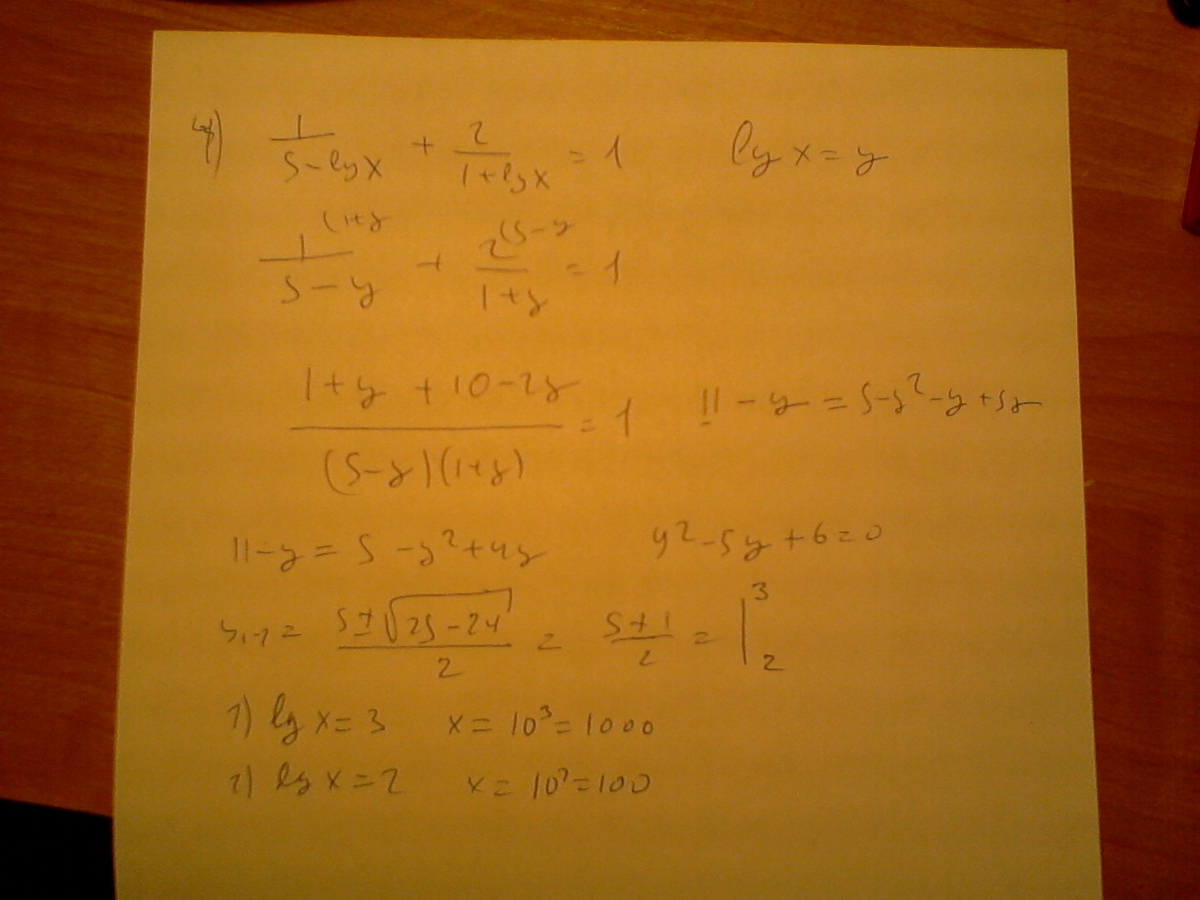 4) 1/(5-lgx) + 2/(1+lgx) = 1 lg x = y
1/(5-y) (1+y + 2/(1+y) (5-y = 1
(1+y + 10-2y)/((5-y)(1+y)) = 1 11 - y = 5-y²-y+5y
11-y = 5 -y²+4y y²-5y+6=0
y₁,₂ = (5±√(25-24))/2 = (5±1)/2 = | 3 2
1) lg x = 3 x = 10³ = 1000
2) lg x = 2 x = 10² = 100